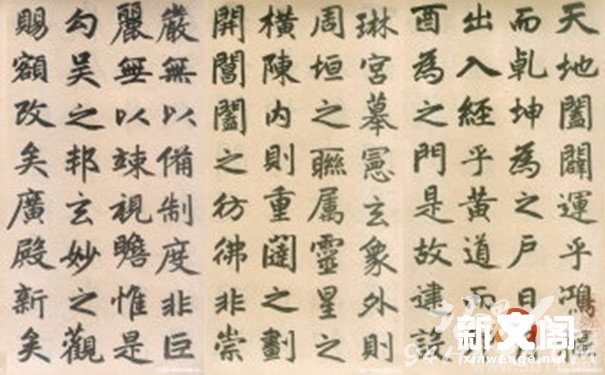 天地闔闢運乎鴻
而乹坤為之戶日
出入經乎黃道而
酉為之門是故建設
琳宮摹憲玄象外則
周垣之聯属靈星之
橫陳內則重闥之劃
開閶闔之彷彿非崇
嚴無以備制度非巨
麗無以竦視瞻惟是
勾吴之邦玄妙之觀
賜額改矣廣殿新矣
新文阁
xinwenge.net